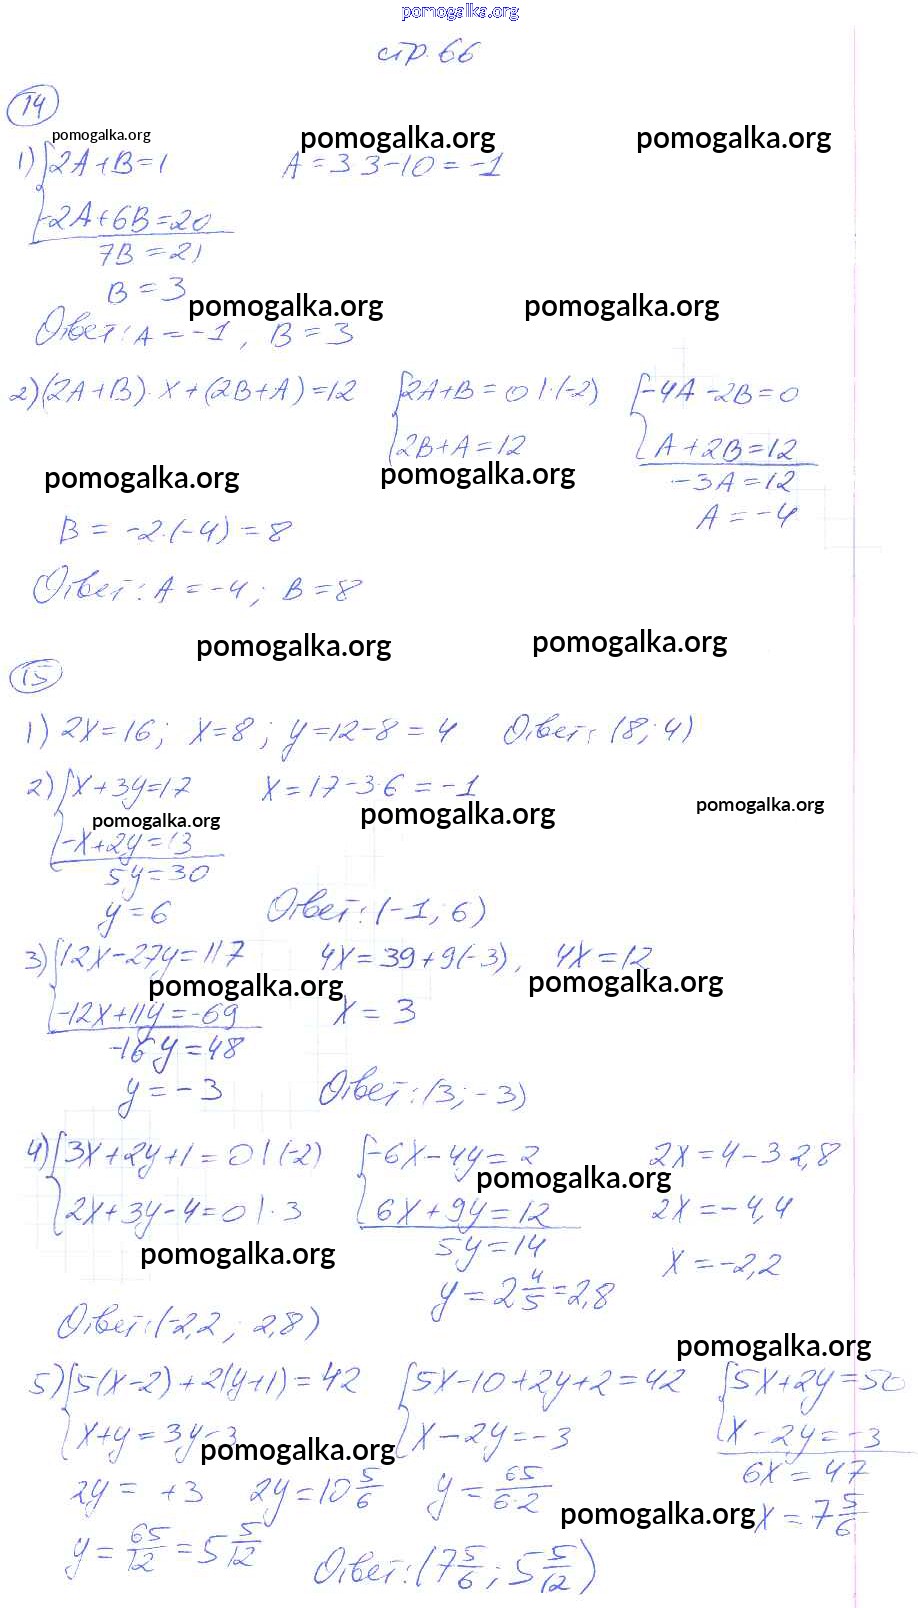 pomogalka.org
стр. 66
14
pomogalka.org pomogalka.org pomogalka.org
1) 2A+B=1 A=3·3-10=-1
-2A+6B=20
7B=21
B=3
pomogalka.org pomogalka.org
Ответ: A=-1, B=3
2) (2A+B)·x+(2B+A)=12 2A+B=0 |·(-2) -4A-2B=0
2B+A=12 A+2B=12
pomogalka.org pomogalka.org
-3A=12
A=-4
B=-2·(-4)=8
Ответ: A=-4; B=8
pomogalka.org pomogalka.org
15
1) 2x=16; x=8; y=12-8=4 Ответ: (8; 4)
2) x+3y=17 x=17-3·6=-1
pomogalka.org pomogalka.org pomogalka.org
-x+2y=13
5y=30
y=6 Ответ: (-1; 6)
3) 12x-27y=117 4x=39+9(-3), 4x=12
pomogalka.org pomogalka.org
-12x+11y=-69 x=3
-16y=48
y=-3 Ответ: (3; -3)
4) 3x+2y+1=0 |(-2) -6x-4y=2 2x=4-3·2,8
pomogalka.org
2x+3y-4=0 |·3 6x+9y=12 2x=-4,4
pomogalka.org
5y=14 x=-2,2
y=2 4/5=2,8
Ответ: (-2,2; 2,8)
pomogalka.org
5) 5(x-2)+2(y+1)=42 5x-10+2y+2=42 5x+2y=50
x+y=3y-3 x-2y=-3 x-2y=-3
pomogalka.org
6x=47
2y= +3 2y=10 5/6 y=65/6·2
pomogalka.org x=7 5/6
y=65/12=5 5/12
Ответ: (7 5/6; 5 5/12)